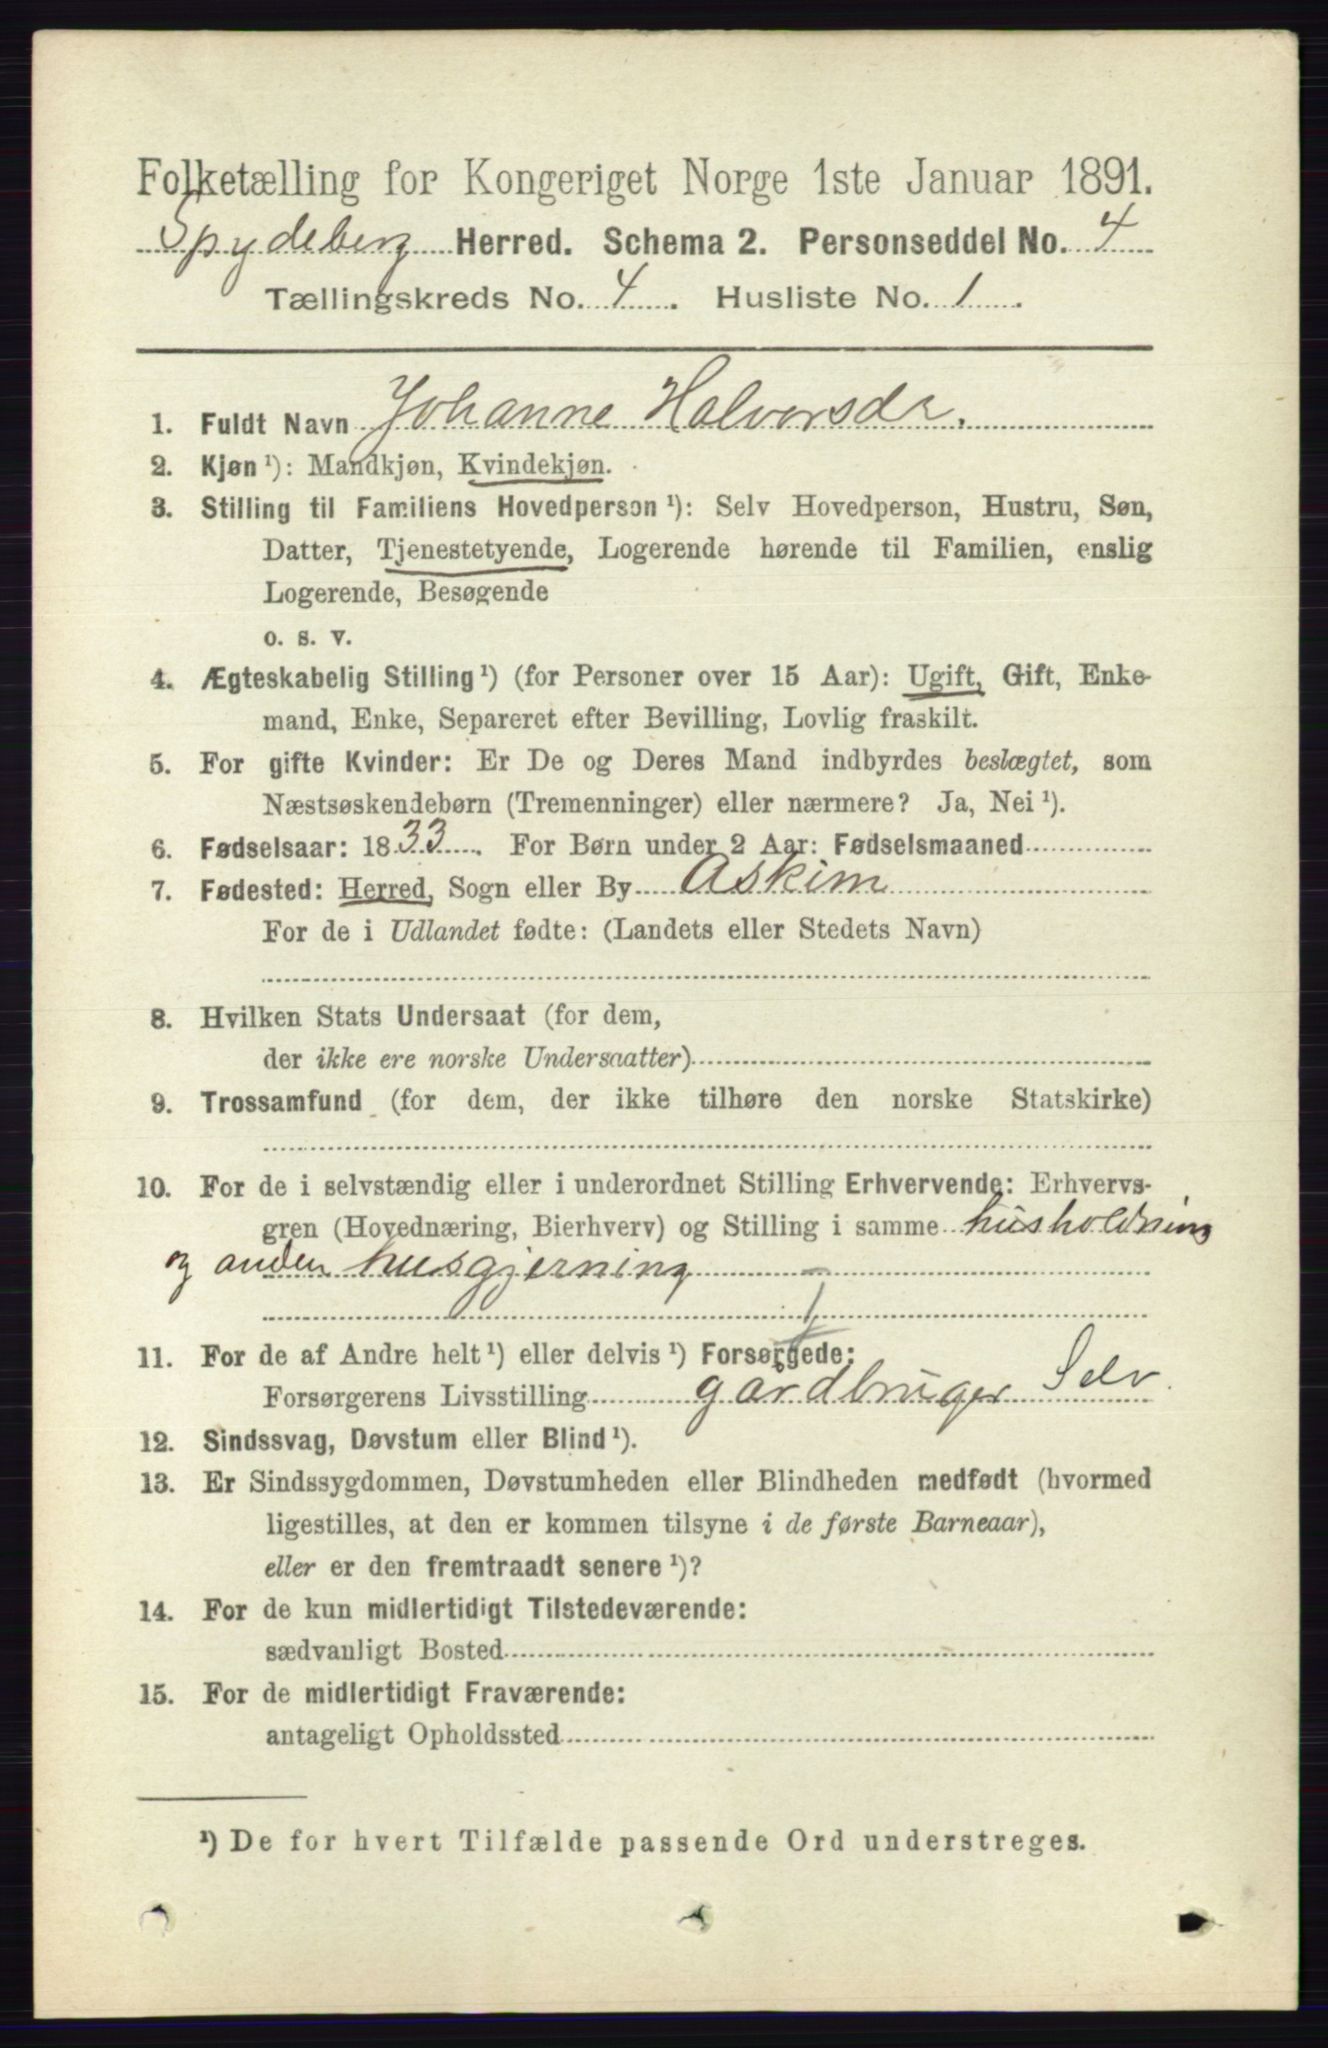 Folketælling for Kongeriget Norge 1ste Januar 1891.
Spydeberg Herred. Schema 2. Personseddel No. 4
Tællingskreds No. 4. Husliste No. 1.
1. Fuldt Navn Johanne Halvorsdr.
2. Kjøn¹): Mandkjøn, Kvindekjøn.
3. Stilling til Familiens Hovedperson¹): Selv Hovedperson, Hustru, Søn,
Datter, Tjenestetyende, Logerende hørende til Familien, enslig
Logerende, Besøgende
o. s. v.
4. Ægteskabelig Stilling¹) (for Personer over 15 Aar): Ugift, Gift, Enke-
mand, Enke, Separeret efter Bevilling, Lovlig fraskilt.
5. For gifte Kvinder: Er De og Deres Mand indbyrdes beslægtet, som
Næstsøskendebørn (Tremenninger) eller nærmere? Ja, Nei¹).
6. Fødselsaar: 1833. For Børn under 2 Aar: Fødselsmaaned
7. Fødested: Herred, Sogn eller By Askim
For de i Udlandet fødte: (Landets eller Stedets Navn)
8. Hvilken Stats Undersaat (for dem,
der ikke ere norske Undersaatter)
9. Trossamfund (for dem, der ikke tilhøre den norske Statskirke)
10. For de i selvstændig eller i underordnet Stilling Erhvervende: Erhvervs-
gren (Hovednæring, Bierhverv) og Stilling i samme husholdning
og anden husgjerning
11. For de af Andre helt¹) eller delvis¹) Forsørgede:
Forsørgerens Livsstilling gårdbruger Selv
12. Sindssvag, Døvstum eller Blind¹).
13. Er Sindssygdommen, Døvstumheden eller Blindheden medfødt (hvormed
ligestilles, at den er kommen tilsyne i de første Barneaar),
eller er den fremtraadt senere¹)?
14. For de kun midlertidigt Tilstedeværende:
sædvanligt Bosted
15. For de midlertidigt Fraværende:
antageligt Opholdssted
¹) De for hvert Tilfælde passende Ord understreges.